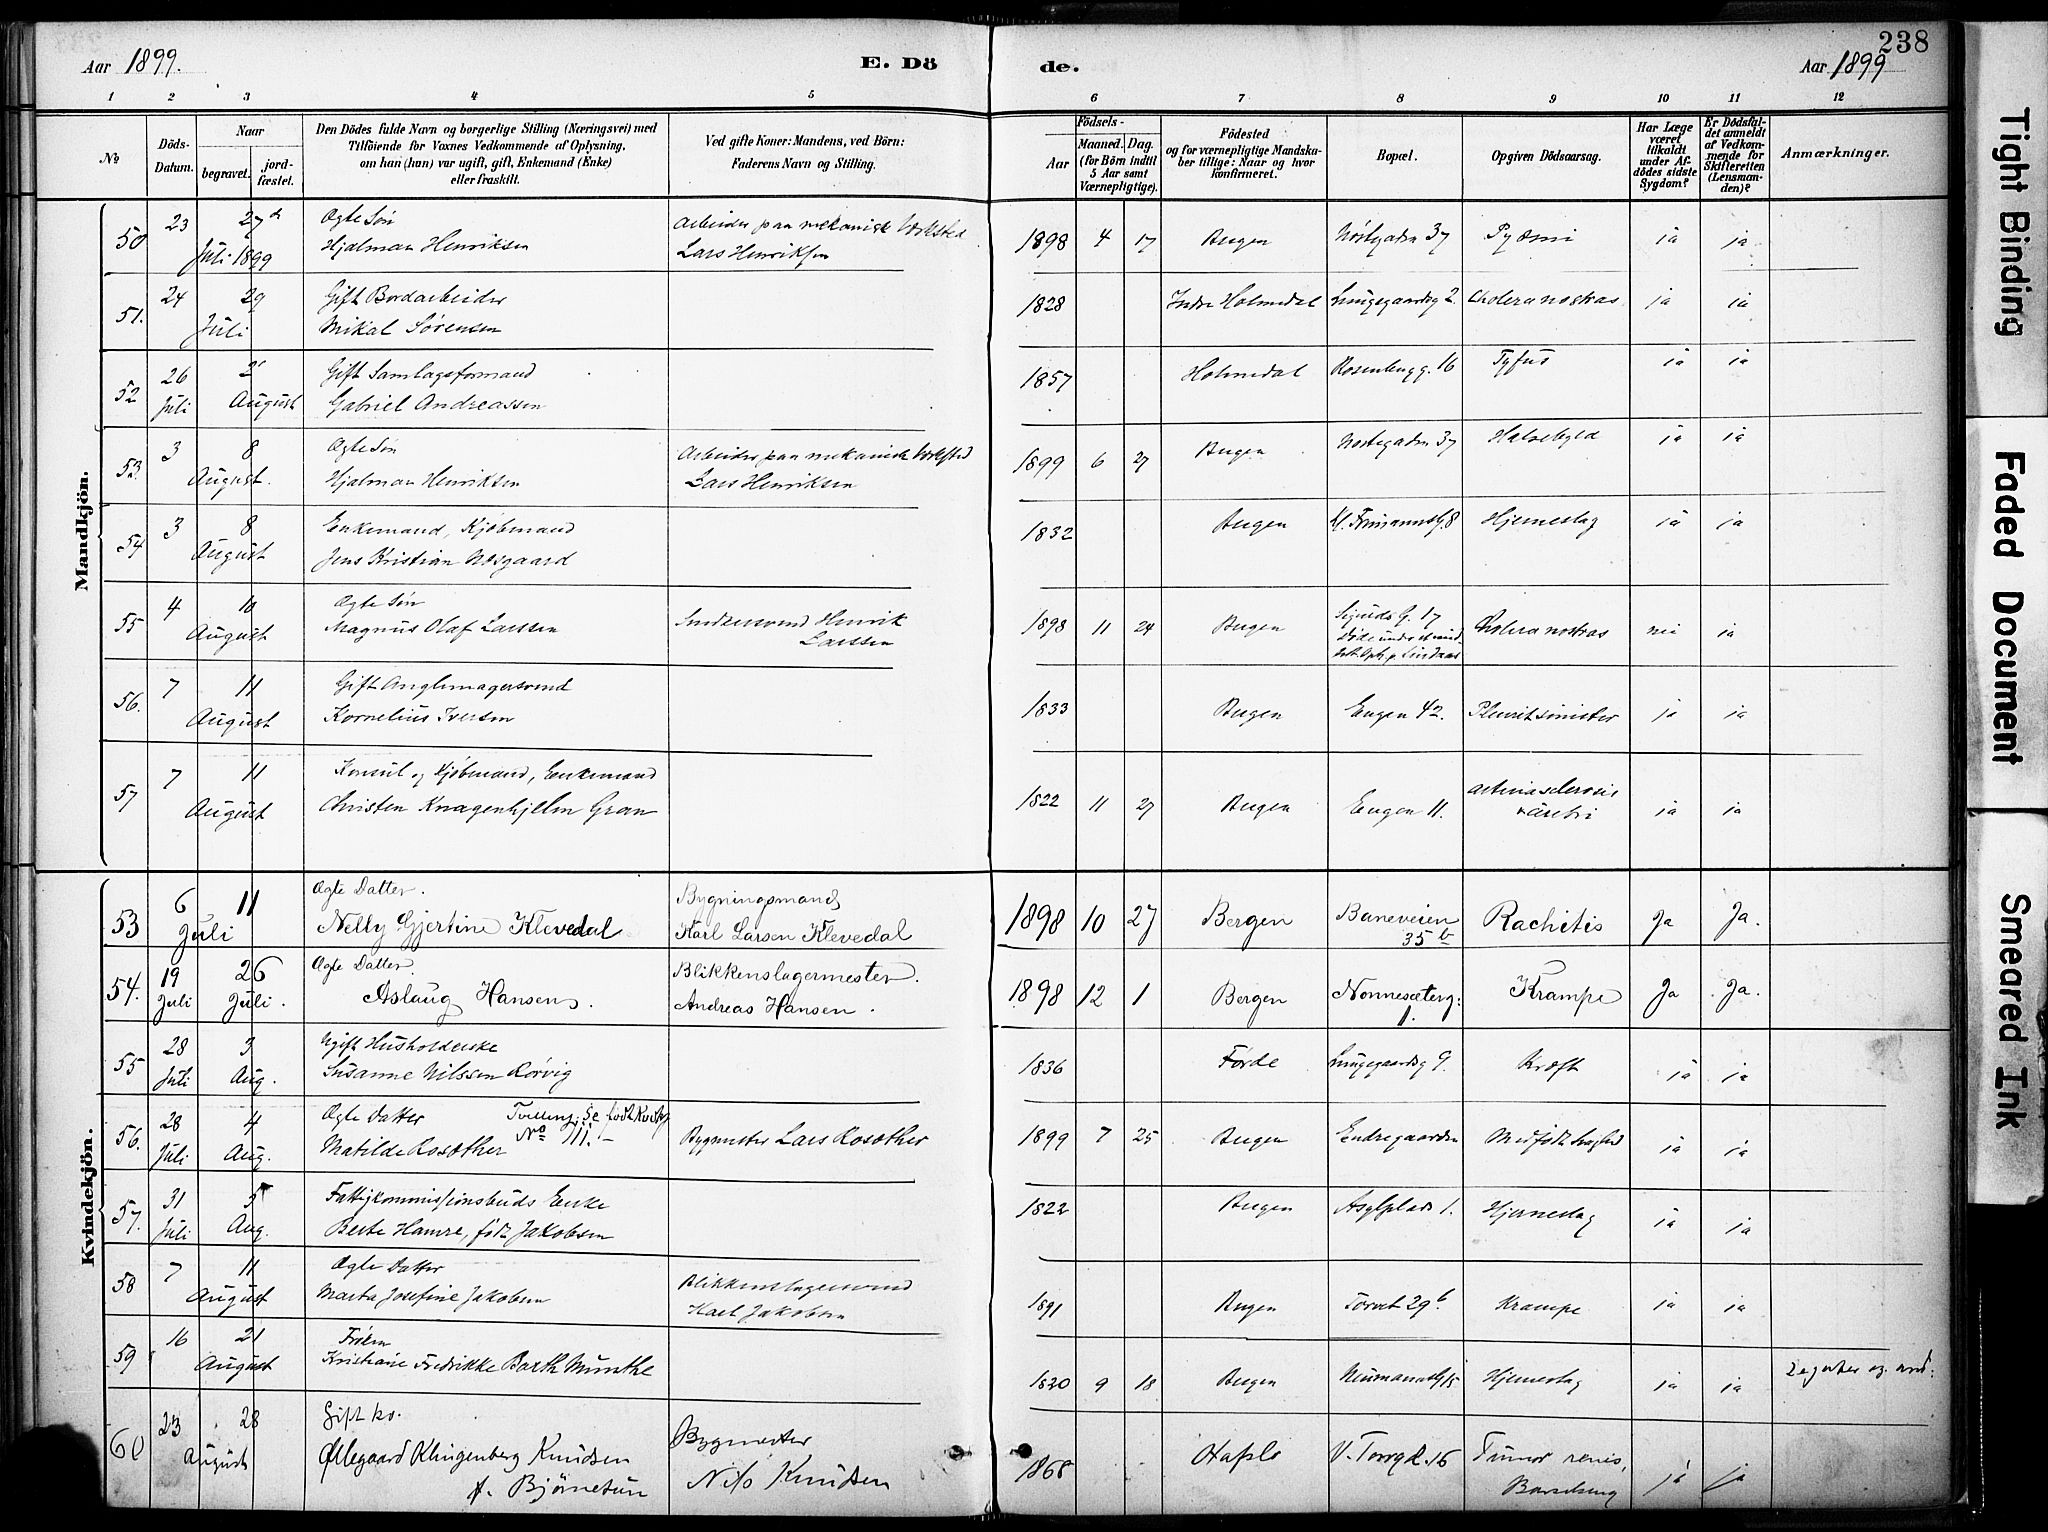 238
Aar 1899.
E. Dö
de.
Aar 1899
1 2 3 4 5 6 7 8 9 10 11 12
No
Döds-Datum.
Naar
begravet.
jord-fæstet.
Den Dödes fulde Navn og borgerlige Stilling (Næringsvei) med
Tilföiende for Voxnes Vedkommende af Oplysning,
om han (hun) var ugift, gift, Enkemand (Enke)
eller fraskilt.
Ved gifte Koner: Mandens, ved Börn:
Faderens Navn og Stilling.
Aar
Födsels-
Maaned. Dag.
(for Börn indtil
5 Aar samt
Værnepligtige).
Födested
og for værnepligtige Mandska-
ber tillige: Naar og hvor
konfirmeret.
Bopæl.
Opgiven Dödsaarsag.
Har Læge
været
tilkaldt
under Af-
dödes sidste
Sygdom?
Er Dödsfal-
det anmeldt
af Vedkom-
mende for
Skifteretten
(Lensman-
den)?
Anmærkninger.
Mandkjön.
50 23 27de Ægte Søn Arbeider paa mekanisk Verksted 1898 4 17 Bergen Nøstegaden 37 Pyæmi ja ja
Juli 1899 Hjalmar Henriksen Lars Henriksen
51. 24 29 Gift Bordarbeider 1828 Indre Holmedal Lungegaardsg 2. Cholera nostras ja ja
Juli Mikal Sørensen
52 26 2' Gift Samlagsformand 1857 Holmedal Rosenbergg. 16 Tyfus ja ja
Juli August Gabriel Andreassen
53. 3 8 Ægte Søn Arbeider paa mekanisk Verksted 1899 6 27 Bergen Nøstegaden 37 Halsebyld ja ja
August. Hjalmar Henriksen Lars Henriksen
54 3 8 Enkemand, Kjøbmand 1832 Bergen Frimannsg. 8 Hjerneslag ja ja
August Jens Kristian Nosgaard
55 4 10 Ægte Søn Snedkersvend Henrik 1898 11 24 Bergen Sigurdsg. 17 Cholera nostras nei ja
August Magnus Olaf Larssen Larssen
56. 7 11 Gift 1833 Bergen Engen 42. Pleurit sinister ja ja
August Kornelius Iversen
57 7 11 Konsul og Kjøbmand, Enkemand 1822 11 27 Bergen Engen 11. ja ja
August Christen Knagenhjelm Gran
Kvindekjön.
53 6 11 Ægte Datter. Bygningsmand 1898 10 27 Bergen Baneveien Rachitis Ja Ja.
Juli Nelly Gjertine Klevedal Karl Larsen Klevedal 35 b
54. 19 26 Ægte Datter. Blikkenslagermester. 1898 12 1 Bergen Nonnesæterg: Krampe Ja Ja.
Juli Juli. Aslaug Hansen. Andreas Hansen. 1.
55 28 3 Ugift Husholderske 1836 Førde Lungegaardsg 9. Kræft ja ja
Juli Aug. Susanne Nilssen Rørvig
56. 28 4 Ægte Datter Tvilling, Se født Kvindekj Bygmester Lars Rosæther 1899 7 25 Bergen Endregaarden Medfødt Svaghed ja ja
Juli Aug. Matilde Rosæther No 111.
57. 31 5 Fattigkommissionsbuds Enke 1822 Bergen Asylplads 1. Hjerneslag ja ja
Juli Aug. Berte Hamre, født Jakobsen
58 7 11 Ægte Datter Blikkenslagersvend 1891 Bergen Torvet 29b. Krampe ja ja
August Marta Josefine Jakobsen Karl Jakobsen
59 16 21 Frøken 1820 9 18 Bergen Neumannsg 15 Hjerneslag ja ja
August Kristiane Fredrikke Barth Munthe
60 23 28 Gift ko. Bygmester 1868 Hafslo V. Torvgd. 16 Tumor renis, ja ja
August Øllegaard Klingenberg Knudsen Nils Knudsen Barselseng
f. Bjørnetun
Tight Binding
Faded Document
Smeared Ink